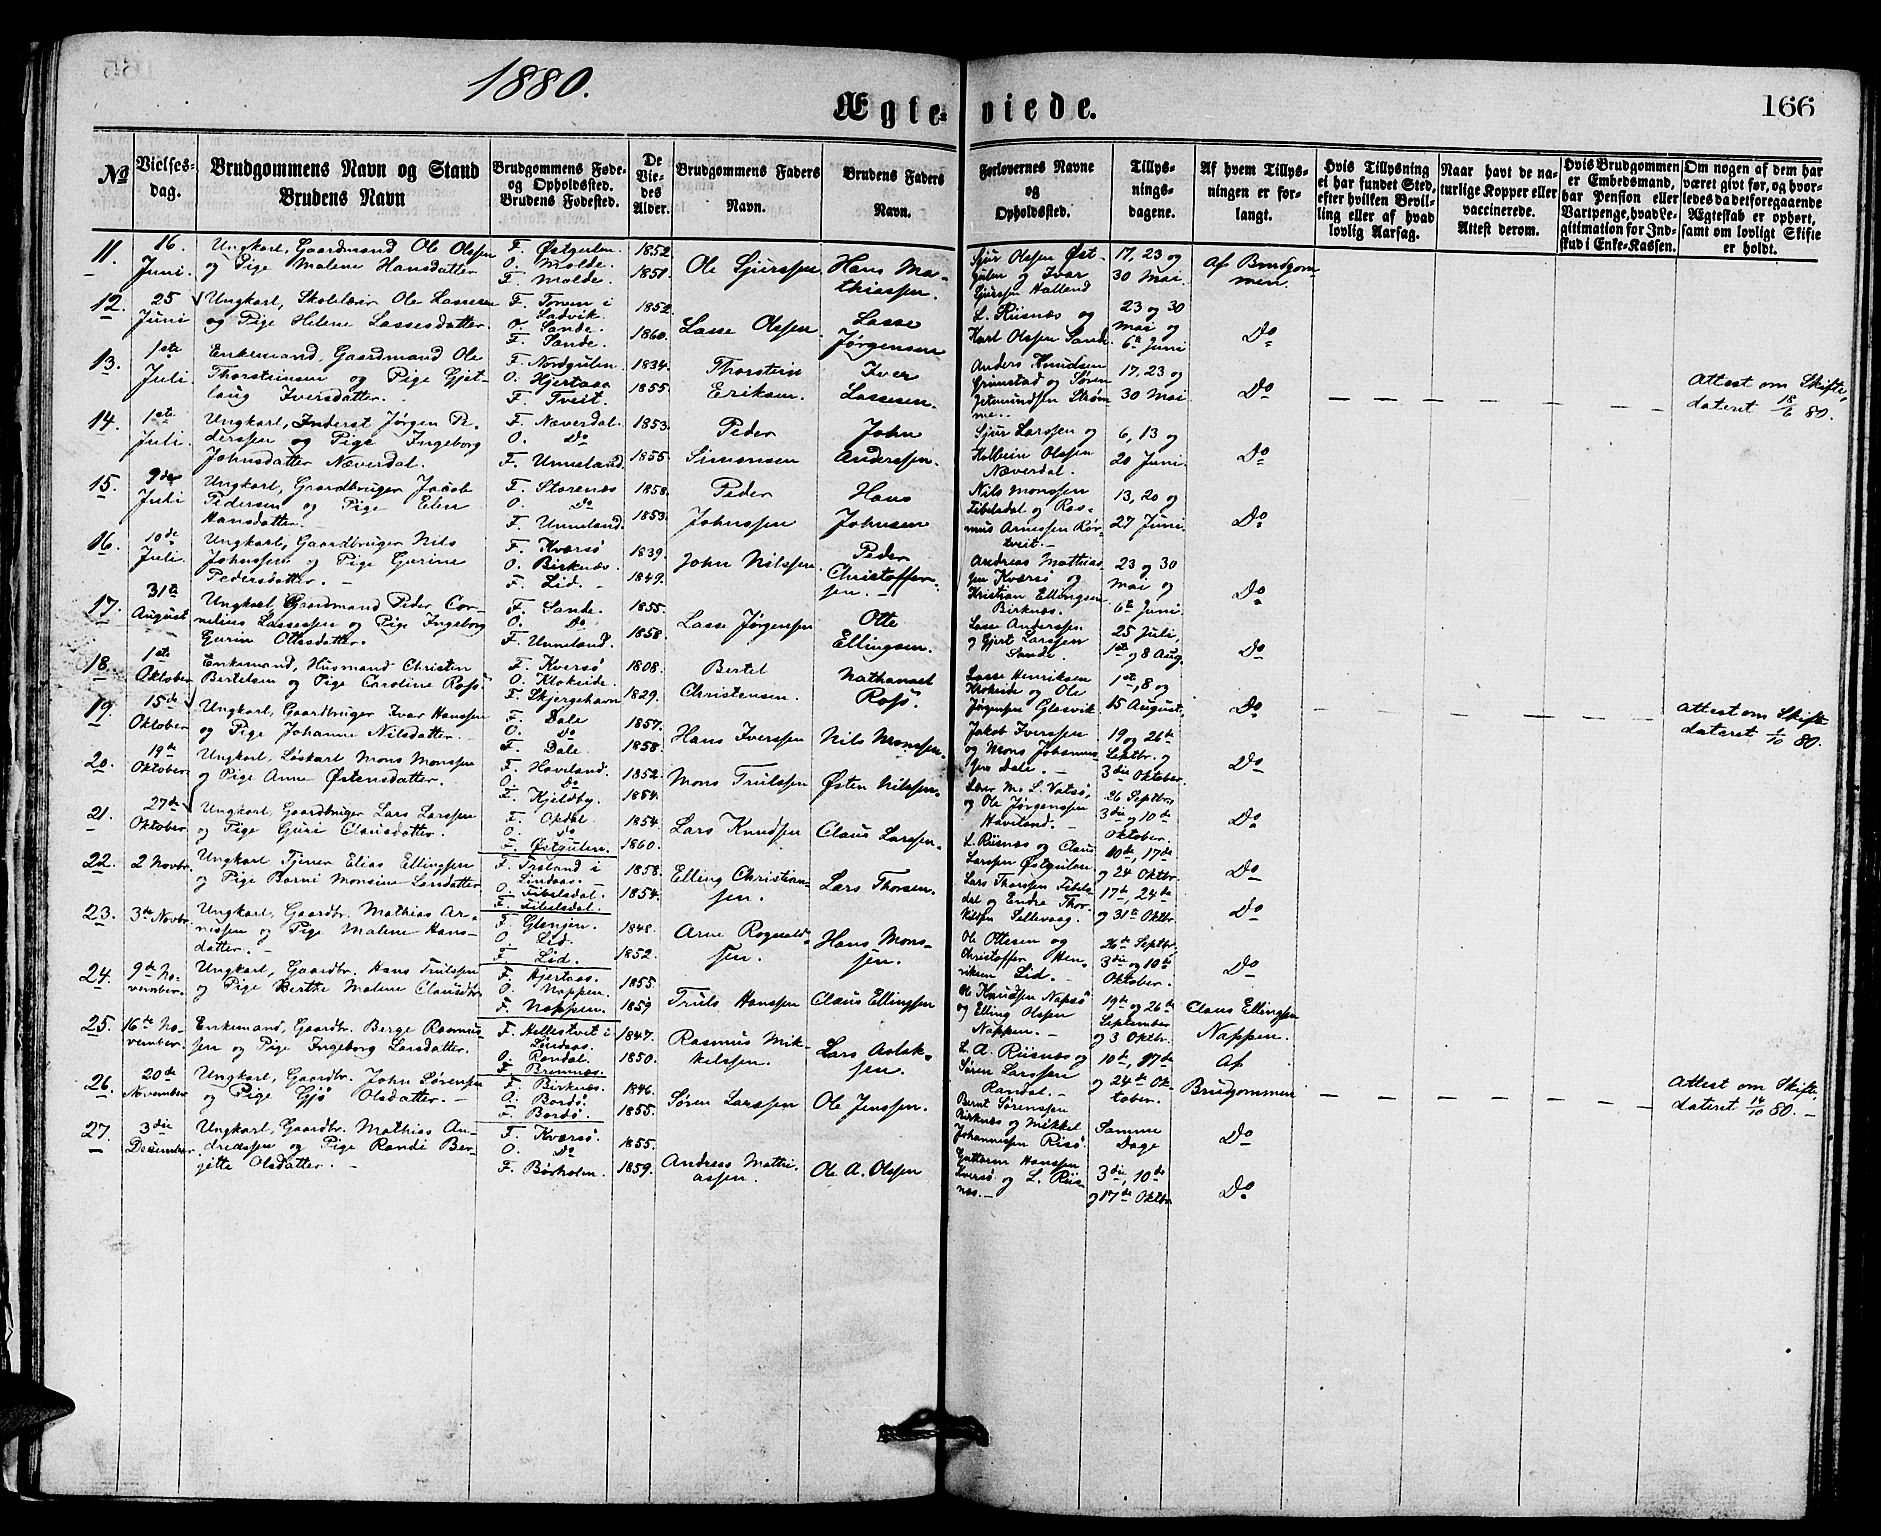 1880.
Ægte-viede.
166
No
Vielses-
dag.
Brudgommens Navn og Stand
Brudens Navn
Brudgommens Føde-
og Opholdssted.
Brudens Fødested.
De
Vie-
des
Alder.
Brudgommens Faders
Navn.
Brudens Faders
Navn.
Forlovernes Navne
og
Opholdssted.
Tillys-
nings-
dagene.
Af hvem Tillys-
ningen er for-
langt.
Hvis Tillysning
ei har fundet Sted,
efter hvilken Bevil-
ling eller af hvad
lovlig Aarsag.
Naar havt de na-
turlige Kopper eller
vaccinerede.
Attest derom.
Hvis Brudgommen
er Embedsmand,
har Pension eller
Vartpenge, hvad Le-
gitimation for Ind-
skud i Enke-Kassen.
Om nogen af dem har
været givt før, og hvor-
ledes da det foregaaende
Ægteskab er ophørt,
samt om lovligt Skifte
er holdt.
11.
16
Juni
Ungkarl, Gaardmand Ole Olssen
og Pige Malene Hansdatter
F. Østgulen.
O. Molde.
F. Molde.
1852.
1851.
Ole Sjurssen
Hans Ma-
thiassen.
Sjur Olssen Øst-
gulen og Ivar
Sjurssen Halland
17, 23 og
30 Mai.
Af Brudgom-
men.
12.
25
Juni
Ungkarl, Skolelærer Ole Lassesen
og Pige Helene Lassesdatter.
F. Torven i
Ladvik.
O. Sande.
F. Sande.
1852.
1860.
Lasse Olssen.
Lasse
Jørgensen
L. Risnæs og
Karl Olssen Sande.
23 og 30
Mai og
6te Juni
Do
13.
1ste
Juli
Enkemand, Gaardmand Ole
Thorsteinsen og Pige Gjet-
laug Iversdatter.
F. Nordgulen.
O. Hjertaas
F. Tveit.
1834.
1855.
Thorstein
Eriksen.
Iver
Lassesen.
Anders Knudsen
Grimstad og Søren
Jetmundsen Strøm-
me.
17, 23 og
30 Mai
Do
Attest om Skifte,
dateret 18/6 80.
14.
1ste
Juli.
Ungkarl, Inderst Jørgen Pe-
derssen og Pige Ingeborg
Johnsdatter Næverdal.
F. Næverdal.
O. Do
F. Unneland.
1853.
1855.
Peder
Simonsen
John
Anderssen.
Sjur Larssen og
Kolbein Olssen
Næverdal.
6, 13 og
20 Juni.
Do
15.
9de
Juli
Ungkarl, Gaardbruger Jacob
Pedersen og Pige Elen
Hansdatter.
F. Storenæs
O. Do
F. Unneland.
1858.
1853.
Peder
Johnssen
Hans
Johnsen
Nils Monssen
Eibelsdal og Ras-
mus Arnessen Rør-
tveit.
13, 20 og
27 Juni.
Do
16.
10de
Juli.
Ungkarl, Gaardbruger Nils
Johnssen og Pige Gurine
Pedersdatter.
F. Kværsø
O. Birknæs.
F. Lid.
1839.
1849.
John Nilssen.
Peder
Christoffer-
sen.
Andreas Mathias-
sen Kværsø og
Kristian Ellingsen
Birknæs.
23 og 30
Mai og
6te Juni.
Do
17.
31te
August
Ungkarl, Gaardmand Peder Cor-
nelius Lassessen og Pige Ingeborg
Gurin Ottesdatter.
F. Sande.
O. Do
F. Unneland.
1855.
1858.
Lasse Jørgensen
Otte
Ellingsen.
Lasse Anderssen
og Gjert Larssen
Sande.
25 Juli,
1ste og 8 Aug.
Do
18.
1ste
Oktober
Enkemand, Husmand Christen
Bertelsen og Pige Caroline Ross.
F. Kversø
O. Klokeide.
F. Skjergehavn
1808.
1829.
Bertel
Christensen.
Nathanael
Ross.
Lasse Henriksen
Klokeide og Ole
Jørgensen Glosvik
1ste, 8 og
15 August.
Do
Attest om Skifte
dateret 1/10 80.
19.
15de
Oktober
Ungkarl, Gaardbruger Ivar Hanssen
og Pige Johanne Nilsdatter.
F. Dale
O. Do
F. Dale
1857.
1858.
Hans Iverssen
Nils Monssen.
Jakob Iverssen
og Mons Johannes-
sen Dale.
19 og 26te
Septbr. og
3die Oktober.
Do
20.
19de
Oktober.
Ungkarl, Løskarl Mons Monssen
og Pige Anne Østensdatter.
F. Haveland.
O. Do
F. Kjeldby.
1852.
1854.
Mons Trulssen
Østen Nilssen.
Lærer M. S. Vatsø,
og Ole Jørgenssen
Haveland.
26 Septbr.
3die og 10de
Oktober.
Do
21.
27de
Oktober
Ungkarl, Gaardbruger Lars Larssen
og Pige Guri Clausdatter.
F. Opdal.
O. Do
F. Østgulen.
1854.
1860.
Lars Knudsen
Claus Larssen.
L. Risnæs og Claus
Larssen Østgulen
10de, 17de
og 24 Oktbr.
Do
22.
2 Novbr.
Ungkarl Tjener Elias Ellingsen
og Pige Borni Monsine Larsdatter
F. Froland i
Lindaas.
O. Eibelsdal.
F. Eibelsdal.
1858.
1854.
Elling Christian-
sen.
Lars Thorsen.
Lars Thorssen Eibels-
dal og Endre Thor-
kilsen Sellevaag.
17de, 24de
og 31te Oktbr.
Do
23.
3die Novbr.
Ungkarl, Gaardbr. Mathias Ar-
nessen og Pige Malene Hans-
datter.
F. Glenjen.
O. Lid.
F. Lid.
1848.
1852.
Arne Rognald-
sen.
Hans Mons-
sen.
Ole Ottesen og
Christoffer Hen-
riksen Lid.
26te Septbr,
3die og 10de
Oktober.
Do
24.
9de No-
vember.
Ungkarl, Gaardbr. Hans Trulssen
og Pige Berthe Malene Clausdtr
F. Hjertaas.
O. Nappen.
F. Nappen.
1855
1859
Truls Hanssen
Claus Ellingsen
Ole Knudsen Napsø
og Elling Olssen
Nappen.
19de og 26te
September
og 3 Oktbr.
Claus Ellingsen
Nappen.
25.
16de No-
vember.
Enkemand, Gaardbr. Berge Rasmus-
sen og Pige Ingeborg Larsdatter.
F. Hellestvet i
Lindaas.
O. Randal.
F. Bremnæs.
1847.
1850.
Rasmus Mik-
kelssen.
Lars Aslak-
sen.
L. A. Risnæs og
Søren Larssen
Randal.
10de, 17de
og 24de Ok-
tober.
Af
Brudgommen
Attest om Skifte.
dateret 14/10 80.
26.
20de
November
Ungkarl, Gaardbr. John Sørensen
og Pige Gjø Olsdatter.
F. Birknæs.
O. Bordø.
F. Bordø.
1846.
1855.
Søren Larssen
Ole Jenssen.
Bernt Sørenssen
Birknæs og Mikkel
Johannessen Risø.
Samme
Dage
Do
27.
3die
December
Ungkarl, Gaardbr. Mathias An-
dreassen og Pige Randi Ber-
gitte Olsdatter.
F. Kværsø.
O. Do
F. Børholm.
1855.
1859.
Andreas Mathi-
assen.
Ole A. Olssen
Guttorm Hanssen
Kversø og L. Riis-
næs.
3die, 10de
og 17de Oktbr
Do